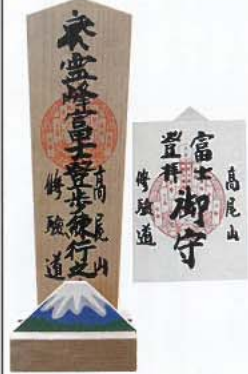 霊峰富士登歩練行之
高尾山
修験道
高尾山
富士
登拝
御守
修験道